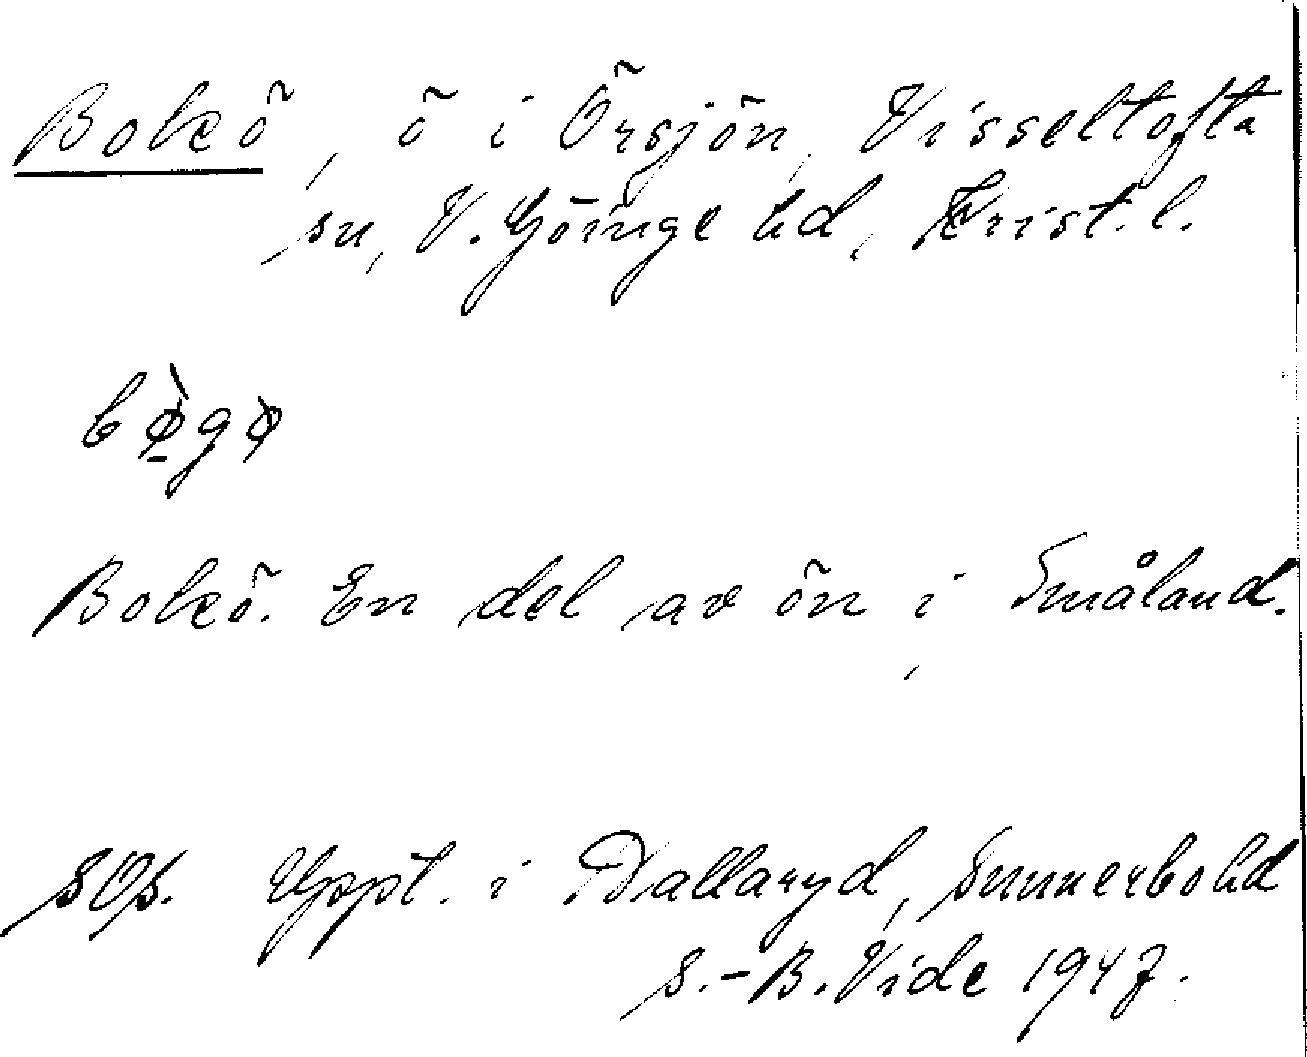 Bokö, ö i Örsjön, Visseltofta
sn, V. Göinge hd, Krist. l.
bø̀gø
Bokö. En del av ön i Småland.
Uppt. i Hallaryd, Sunnerbo hd
S.-B. Vide 1947.